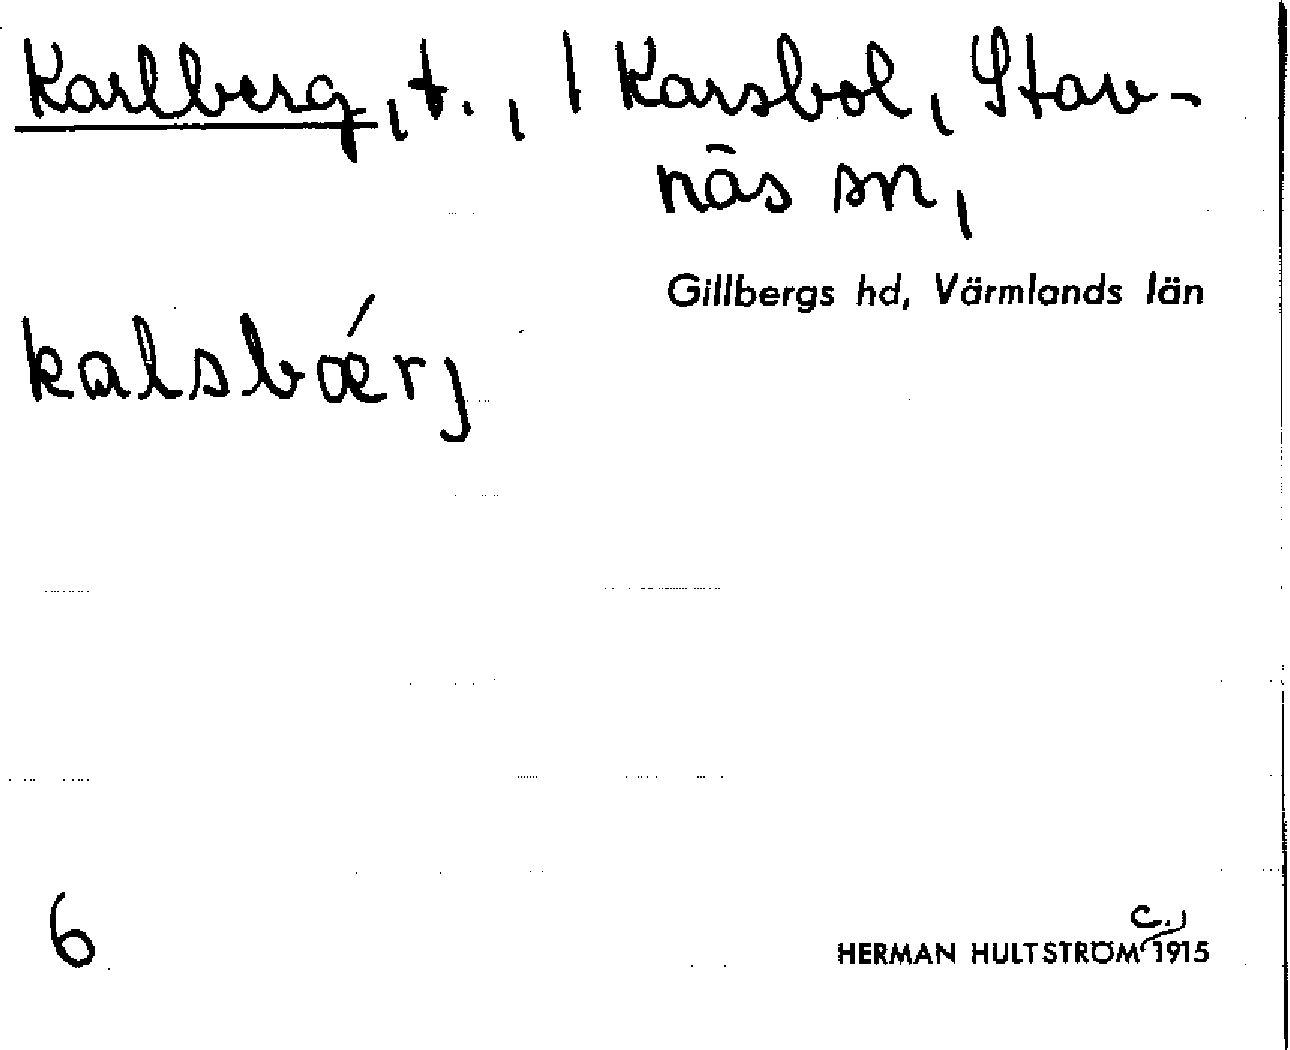 Karlberg, t., 1 Karsbol, Stav-
näs sn,
Gillbergs hd, Värmlands län
kalsbǽrj
6
HERMAN HULTSTRÖM c., 1915